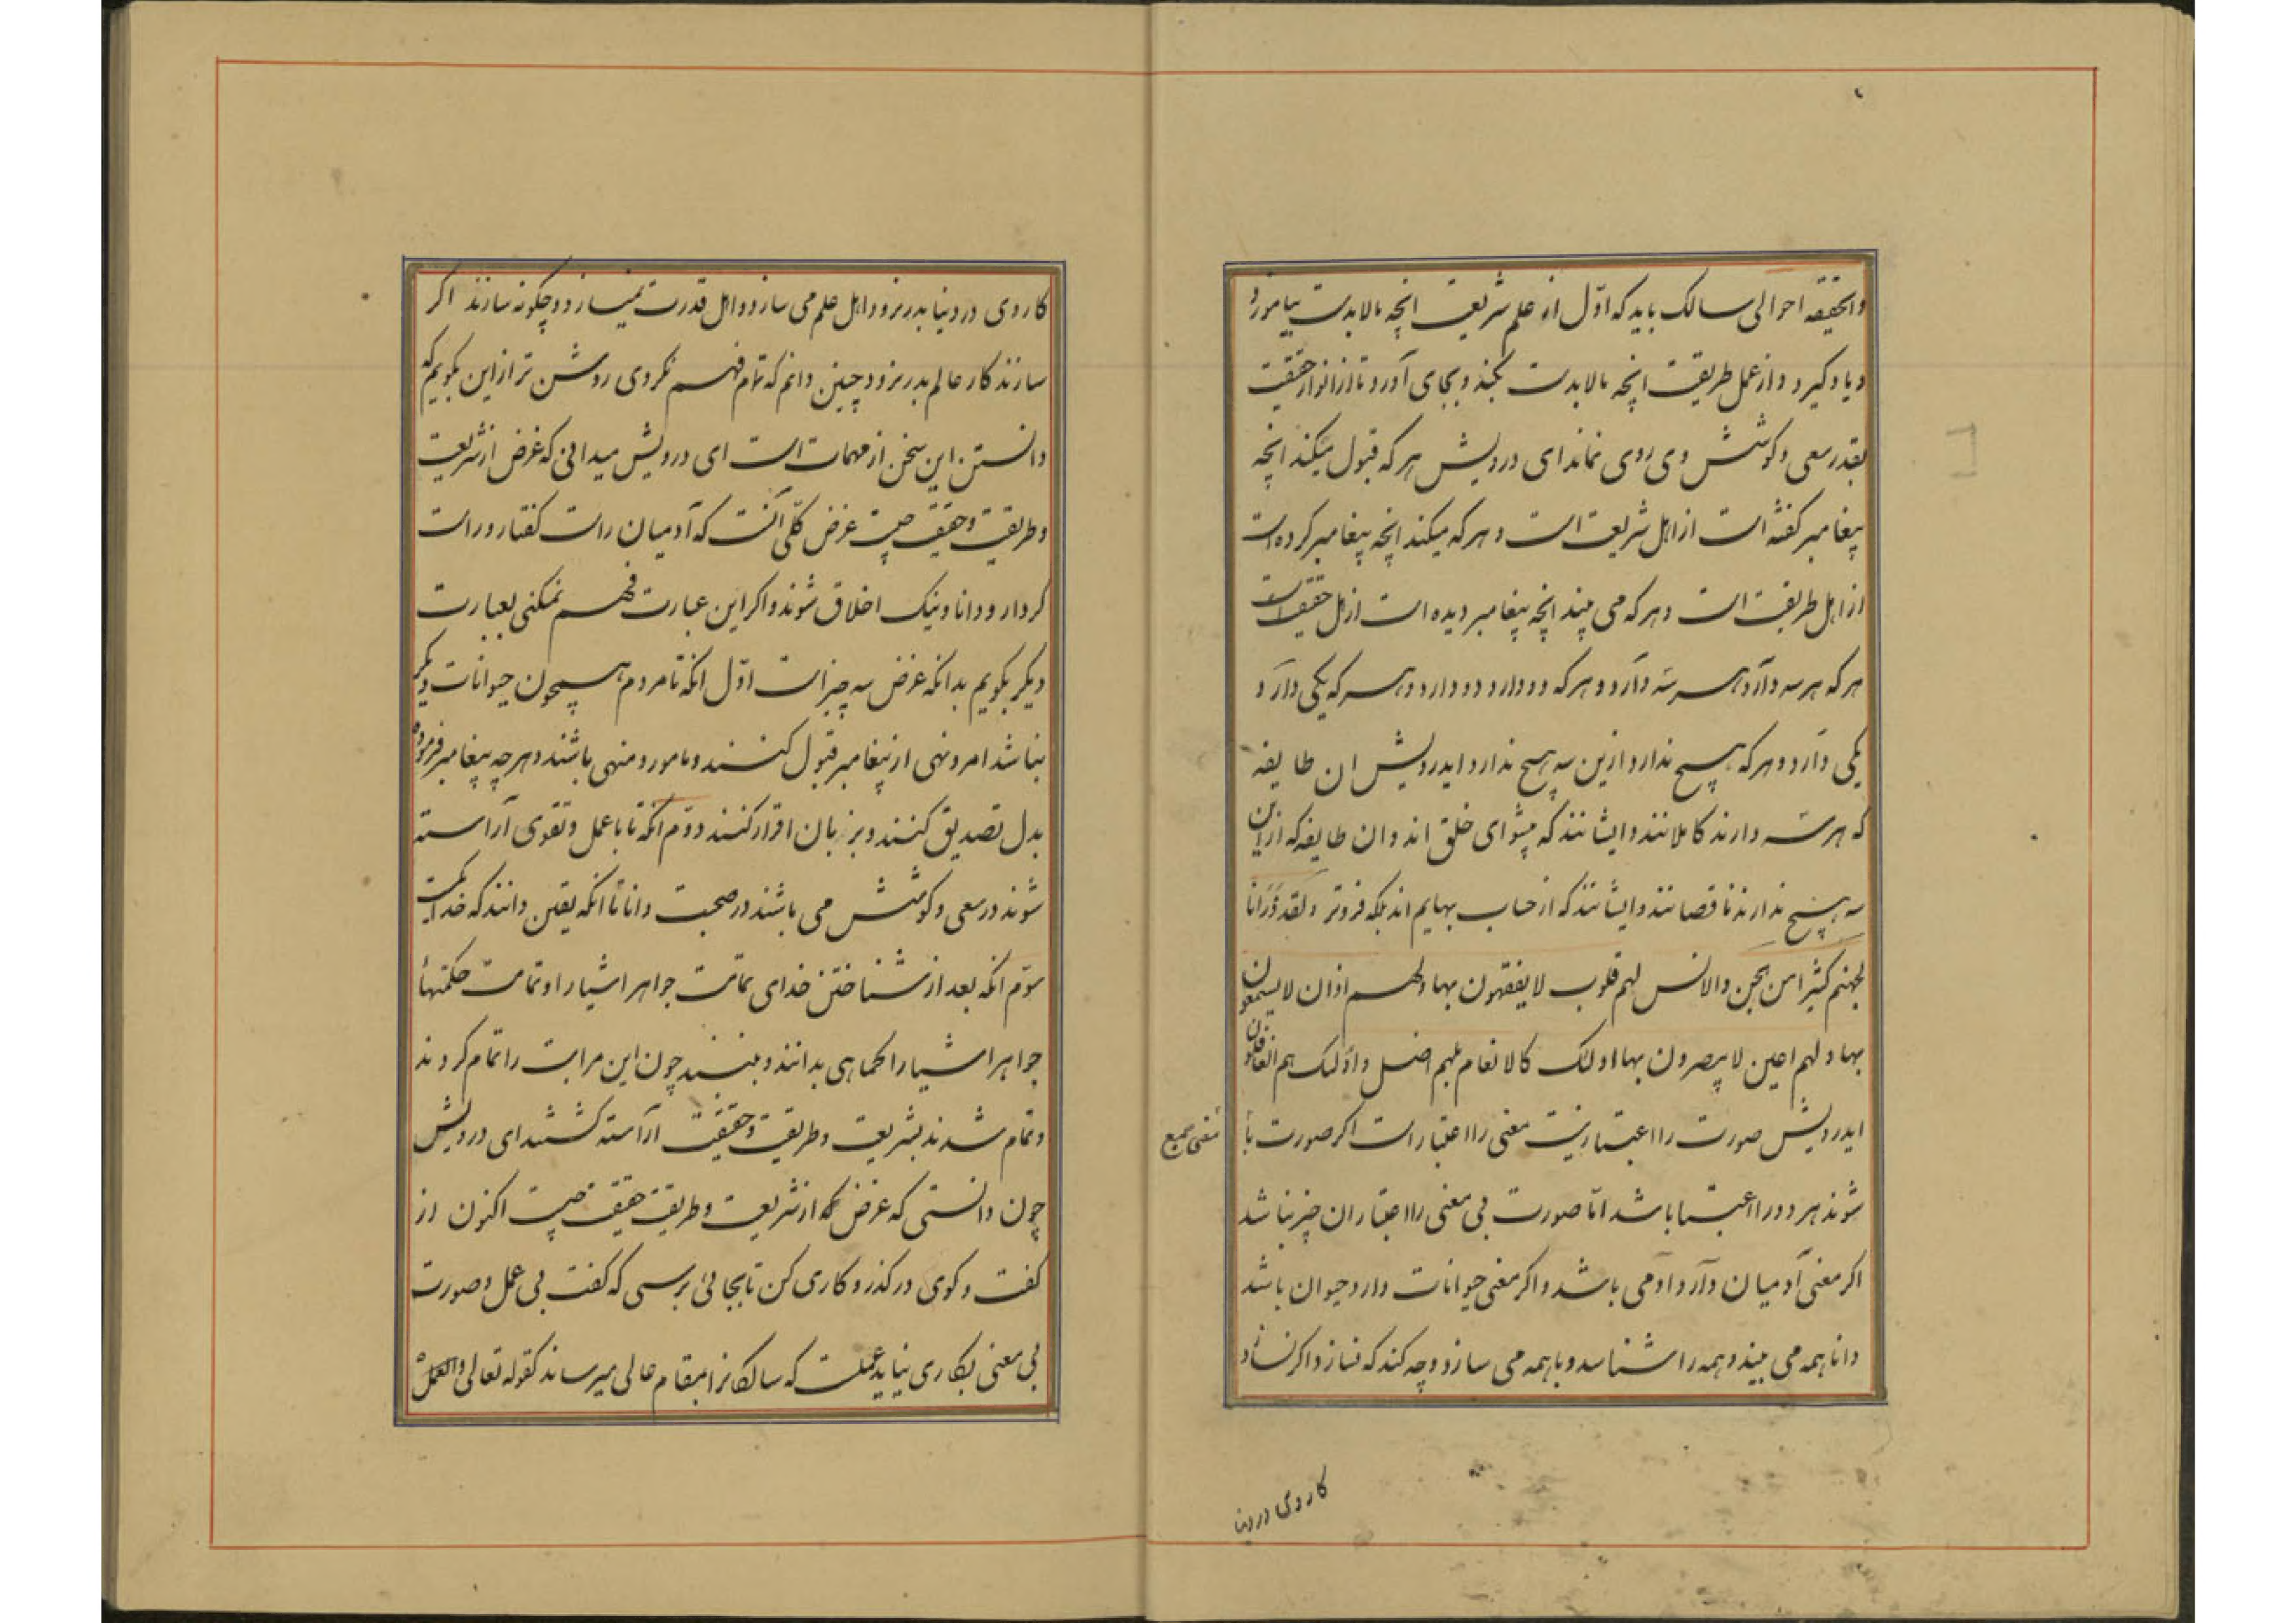 والحقیقه احوالی سالک باید که اوّل از علم شریعت انچه مالابدست بیاموزد
و یاد گیرد و از عمل طریقت انچه مالابدست بکند و بجای آورد تا از انوار حقیقت
بقدر سعی و کوشش وی روی نماند ای درویش هر که قبول میکند انچه
پیغامبر گفته است از اهل شریعت است و هر که میکند انچه پیغامبر کرده است
از اهل طریقت است و هر که می بیند انچه پیغامبر دیده است از اهل حقیقت است
هر که هر سه دارد هر سه دارد و هر که دو دارد دو دارد و هر که یکی دارد
یکی دارد و هر که هیچ ندارد ازین سه هیچ ندارد ایدرویش ان طایفه
که هر سه دارند کاملانند و ایشانند که پیشوای خلق اند و ان طایفه که ازین
سه هیچ ندارند ناقصانند و ایشانند که از حساب بهایم اند بلکه فروتر ولقد ذرانا
لجهنم کثیرا من الجن والانس لهم قلوب لا یفقهون بها ولهم اذان لا یسمعون
بها ولهم اعین لا یبصرون بها اولئک کالانعام بلهم اضل واولئک هم الغافلون
ایدرویش صورت را اعتبار نیست معنی را اعتبار است اکر صورت با
معنی جمع
شوند هر دو را اعتبار باشد امّا صورت بی معنی را اعتباران چیز نباشد
اکر معنی آدمیان دارد ادمی باشد و اکر معنی حیوانات دارد حیوان باشد
دانا همه می بیند و همه را شناسد و با همه می سازد و چه کند که نسازد اکر نسازد
کار وی در دنیا
کار وی در دنیا بدر نرود و اهل علم می سازد و اهل قدرت نمیسازد و چکونه سازند اکر
سازند کار عالم بدر نرود چنین دانم که تمام فهم نکردی روشن تر از این بکویم که
دانستن این سخن از مهمات است ای درویش میدانی که غرض از شریعت
و طریقت و حقیقت چیست غرض کلّی آنست که آدمیان راست کفتار و راست
کردار و دانا و نیک اخلاق شوند و اکر این عبارت فهم نمیکنی بعبارت
دیکر بکویم بدانکه غرض سه چیز است اوّل انکه تا مردم همچون حیوانات دیکر
نباشد امر و نهی از پیغامبر قبول کنند و مامور و منهی باشند و هر چه پیغامبر فرموده
بدل تصدیق کنند و بزبان اقرار کنند دوّم انکه تا با عمل و تقوی آراسته
شوند در سعی و کوشش می باشند در صحبت دانا تا انکه یقین دانند که خدا یکیست
سوّم انکه بعد از شناختن خدای تمامت جواهر اشیا را و تمامت حکمتهاء
جواهر اشیا را کماهی بدانند و ببینند چون این مراتب را تمام کردند
و تمام شدند بشریعت و طریقت و حقیقت آراسته کشتند ای درویش
چون دانستی که غرض که از شریعت و طریقت حقیقت چیست اکنون از
کفت و کوی در کذر و کاری کن تا بجائی برسی که کفت بی عمل و صورت
بی معنی بکاری نیاید عملست که سالکانرا بمقام عالی میرساند کقوله تعالی والعمل